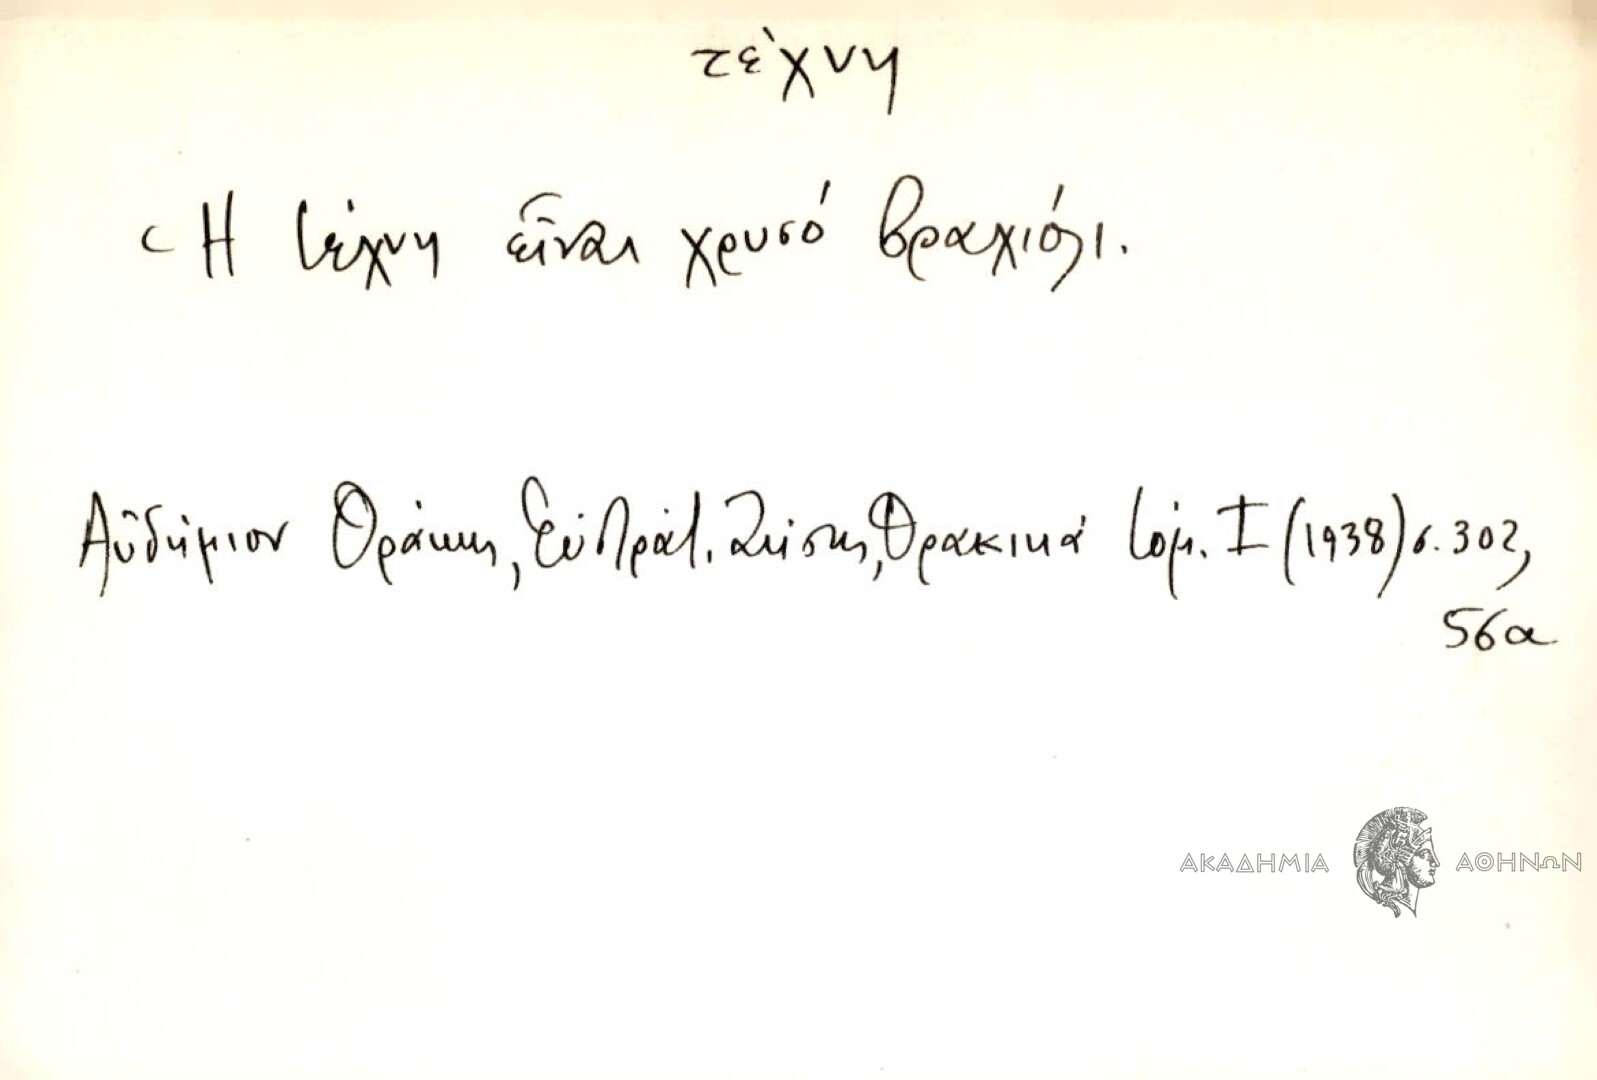 τέχνη
Ἡ τέχνη εἶναι χρυσό βραχιόλι.
Αὐδήμιον Θράκης, Εὐστράτ. Ζήσης, Θρακικά τόμ. Ι (1938) σ. 302,
56α
ΑΚΑΔΗΜΙΑ ΑΘΗΝΩΝ